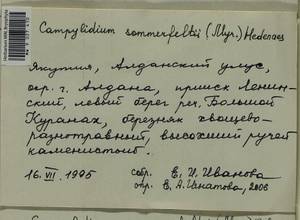 Campylidium sommerfeltii (Myr.) Hedenaes
Якутия, Алданский улус,
окр. г. Алдана, прииск Ленин-
ский, левый берег реч. Большой
Куранах, березняк хвощево-
разнотравный, высохший ручей
каменистый.
16.VII.1995 собр. Е. И. Иванова
опр. Е. А. Игнатова, 2006